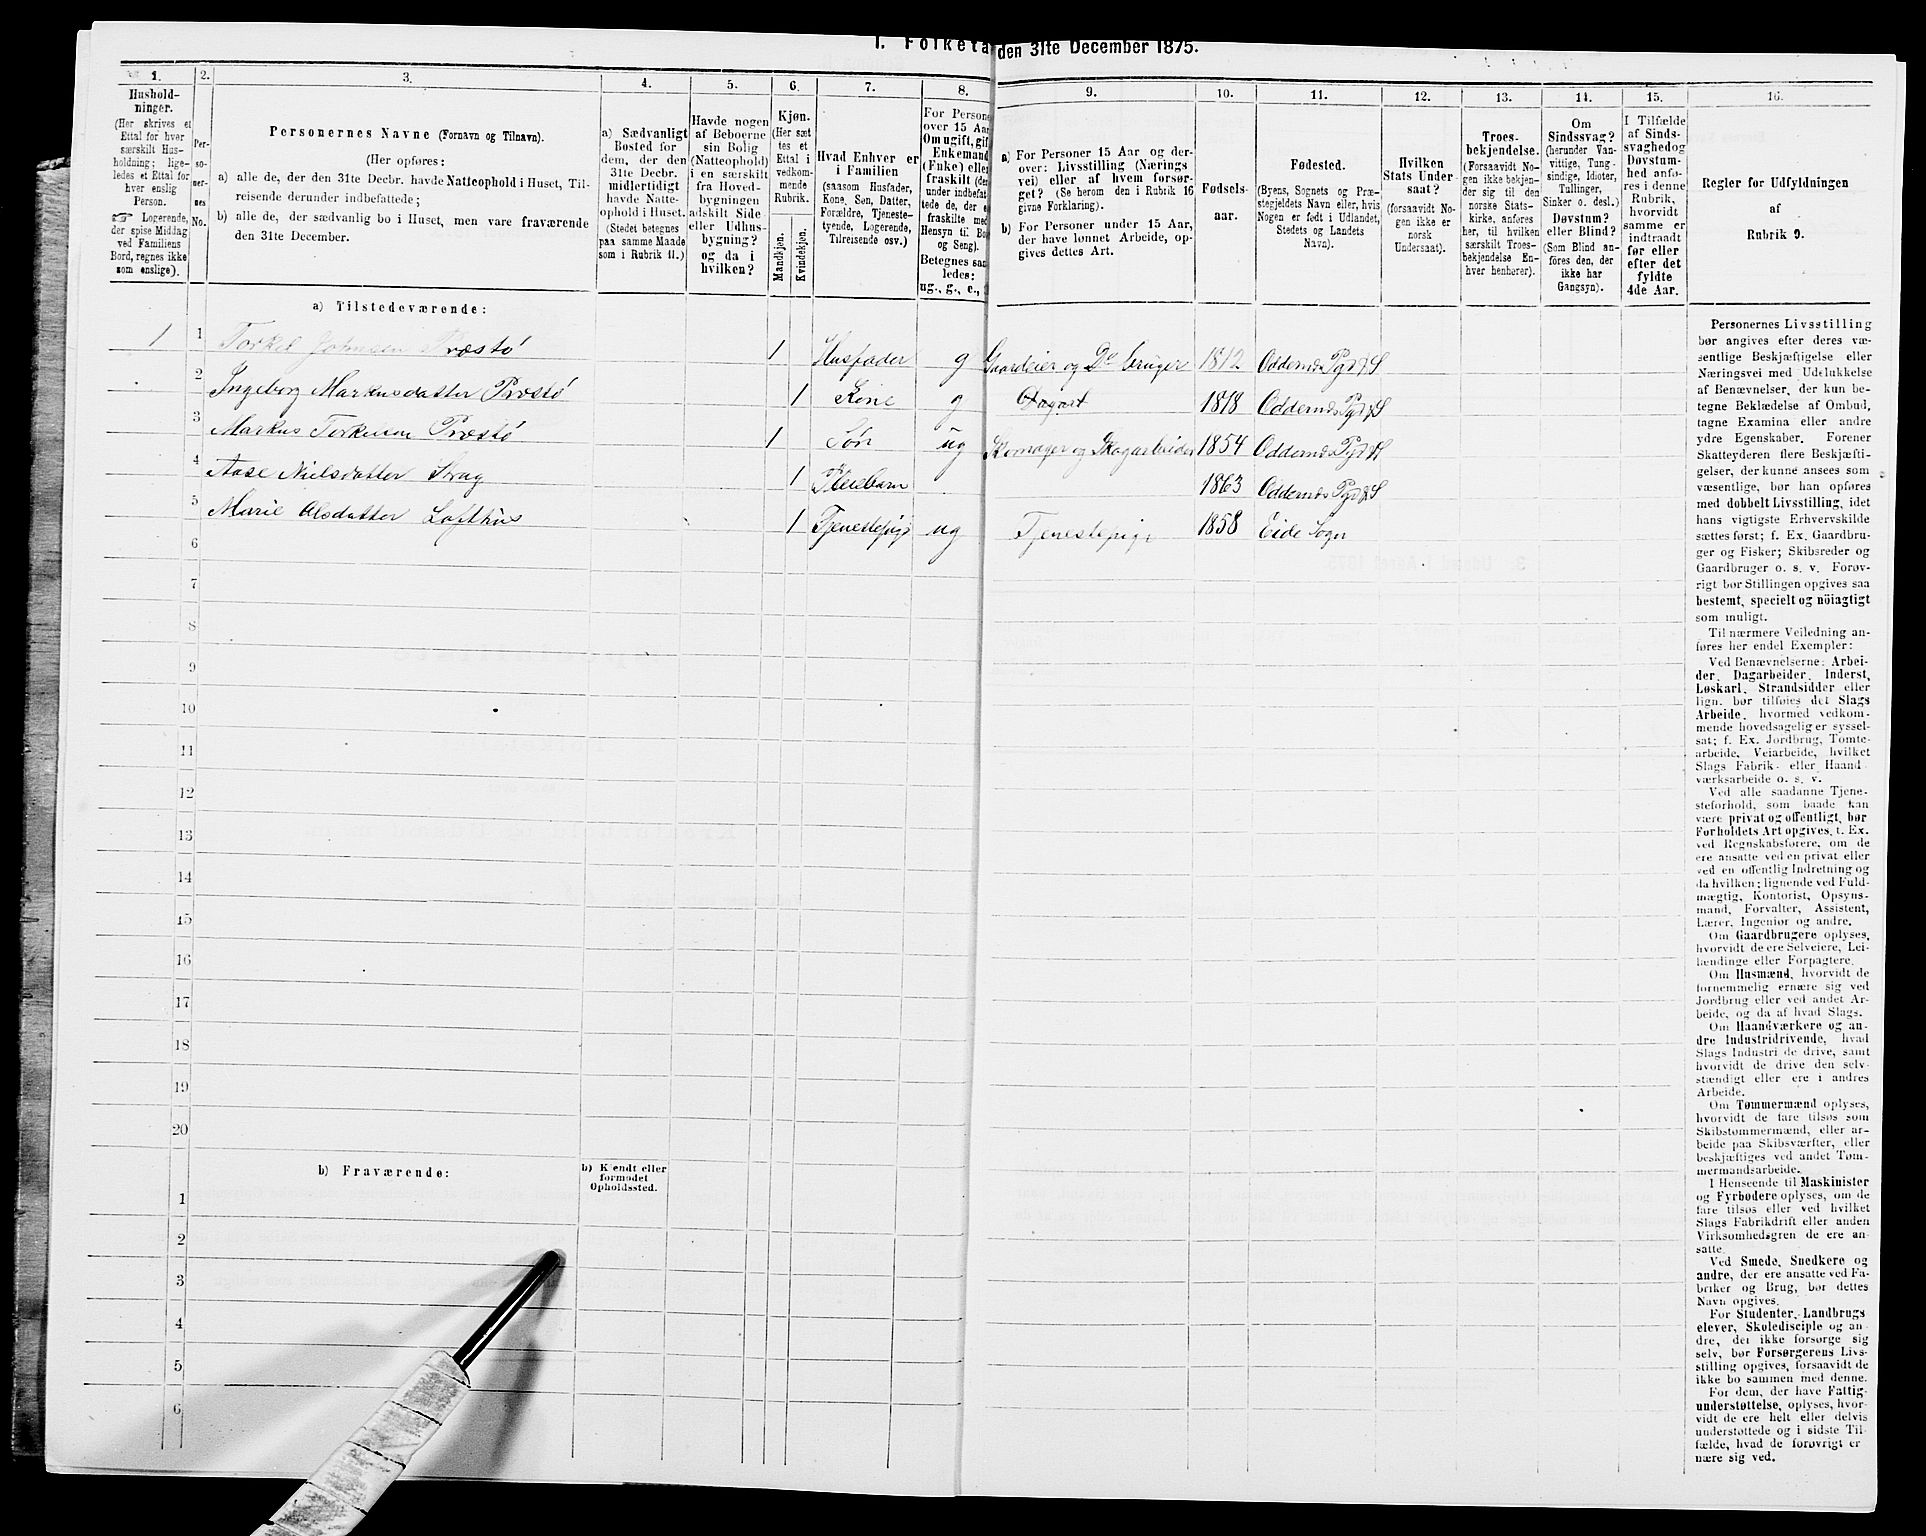 I. Folketæ den 31te December 1875.
1.
2.
3.
4.
5.
6.
7.
8.
9.
10.
11.
12.
13.
14.
15.
16.
Hushold-
ninger.
(Her skrives et
Ettal for hver
særskilt Hus-
holdning; lige-
ledes et Ettal for
hver enslig
Person.
☞ Logerende,
der spise Middag
ved Familiens
Bord, regnes ikke
som enslige).
Per-
so-
ner-
nes
No.
Personernes Navne (Fornavn og Tilnavn).
(Her opføres:
a) alle de, der den 31te Decbr. havde Natteophold i Huset, Til-
reisende derunder indbefattede;
b) alle de, der sædvanlig bo i Huset, men vare fraværende
den 31te December.
a) Sædvanligt
Bosted for
dem, der den
31te Decbr.
midlertidigt
havde Natte-
ophold i Huset.
(Stedet betegnes
paa samme Maade
som i Rubrik 11.)
Havde nogen
af Beboerne
sin Bolig
(Natteophold)
i en særskilt
fra Hoved-
bygningen
adskilt Side
eller Udhus-
bygning?
og da i
hvilken?
Kjøn.
(Her sæt
tes et
Ettal i
vedkom-
mende
Rubrik.
Mandkjøn.
Kvindekjøn.
Hvad Enhver er
i Familien
(saasom Husfader,
Kone, Søn, Datter,
Forældre, Tjeneste-
tyende, Logerende,
Tilreisende osv.)
For Persone
over 15 Aar
Om ugift, gif
Enkemand
(Enke) elle
fraskilt (der
under indbefat
tede de, der e
fraskilte med
Hensyn til Bo
og Seng).
Betegnes saa
ledes:
ug., g., e.,
a) For Personer 15 Aar og der-
over: Livsstilling (Nærings
vei) eller af hvem forsør-
get? (Se herom den i Rubrik 16
givne Forklaring).
b) For Personer under 15 Aar,
der have lønnet Arbeide, op-
gives dettes Art.
Fødsels-
aar.
Fødested.
(Byens, Sognets og Præ-
stegjeldets Navn eller, hvis
Nogen er født i Udlandet,
Stedets og Landets
Navn).
Hvilken
Stats Under
saat?
(forsaavidt No-
gen ikke er
norsk
Undersaat).
Troes-
bekjendelse.
(Forsaavidt No-
gen ikke bekjen-
der sig til den
norske Stats-
kirke, anføres
her, til hvilken
særskilt Troes-
bekjendelse En-
hver henhører).
Om
Sindssvag?
(herunder Van-
vittige, Tung-
sindige, Idioter,
Tullinger,
Sinker o. desl.)
Døvstum?
eller Blind?
(Som Blind an-
føres den, der
ikke har
Gangsyn).
I Tilfælde
af Sinds-
svaghedog
Døvstum-
hed anfø-
res i denne
Rubrik,
hvorvidt
samme er
indtraadt
før eller
efter det
fyldte
4de Aar.
Regler for Udfyldningen
af
Rubrik 9.
a) Tilstedeværende:
1 1 Torkel Johnsen Præstø 1 Husfader g Gaardeier og Do bruger 1812 Oddernæs
2 Ingeborg Markusdatter Præstø 1 Kone g 1818 Oddernæs
3 Markus Torkelsen Præstø 1 Søn ug Skomager og Skogarbeider 1854 Oddernæs
4 Aase Nielsdatter Strag 1 Pleiebarn 1863 Oddernæs
5 Marie Olsdatter Lofthus 1 Tjenestepige ug Tjenestepige 1858 Eide Sogn
6
7
8
9
10
11
12
13
14
15
16
17
18
19
20
b) Fraværende:
b) Kjendt eller
formodet
Opholdssted.
1
2
3
4
5
6
Personernes Livsstilling
bør angives efter deres væ-
sentlige Beskjæftigelse eller
Næringsvei med Udelukkelse
af Benævnelser, der kun be-
tegne Beklædelse af Ombud,
tagne Examina eller andre
ydre Egenskaber. Forener
Skatteyderen flere Beskjæfti-
gelser, der kunne ansees som
væsentlige, bør han opføres
med dobbelt Livsstilling, idet
hans vigtigste Erhvervskilde
sættes først; f. Ex. Gaardbru-
ger og Fisker; Skibsreder og
Gaardbruger o. s. v. Forøv-
rigt bør Stillingen opgives saa
bestemt, specielt og nöiagtigt
som muligt.
Til nærmere Veiledning an-
føres her endel Exempler:
Ved Benævnelserne: Arbei-
der, Dagarbeider, Inderst,
Løskarl, Strandsidder eller
lign. bør tilføies det Slags
Arbeide, hvormed vedkom-
mende hovedsagelig er syssel-
sat; f. Ex. Jordbrug, Tomte-
arbeide, Veiarbeide, hvilket
Slags Fabrik- eller Haand-
værksarbeide o. s. v.
Ved alle saadanne Tjene-
steforhold, som baade kan
være privat og offentligt, bør
Forholdets Art opgives, t. Ex.
ved Regnskabsførere, om de
ere ansatte ved en privat eller
ved en offentlig Indretning og
da hvilken; lignende ved Fuld-
mægtig, Kontorist, Opsyns-
mand, Forvalter, Assistent,
Lærer, Ingeniør og andre.
Om Gaardbrugere oplyses,
hvorvidt de ere Selveiere, Lei-
lændinge eller Forpagtere.
Om Husmænd, hvorvidt de
fornemmelig ernære sig ved
Jordbrug eller ved andet Ar-
beide, og da af hvad Slags.
Om Haandværkere og an-
dre Industridrivende, hvad
Slags Industri de drive, samt
hvorvidt de drive den selv-
stændigt eller ere i andres
Arbeide.
Om Tømmermænd oplyses,
hvorvidt de fare tilsøs som
Skibstømmermænd, eller ar-
beide paa Skibsværfter, eller
beskjæftiges ved andet Tøm-
mermandsarbeide.
I Henseende til Maskinister
og Fyrbødere oplyses, om de
fare tilsøs eller ved hvilket
Slags Fabrikdrift eller anden
Virksomhedsgren de ere an-
satte.
Ved Smede, Snedkere og
andre, der ere ansatte ved Fa-
briker og Brug, bør dettes
Navn opgives.
For Studenter, Landbrugs
elever, Skoledisciple og an-
dre, der ikke forsørge sig
selv, bør Forsørgerens Livs-
stilling opgives, forsaavidt de
ikke bo sammen med denne.
For dem, der have Fattig-
understøttelse, oplyses, hvor-
vidt de ere helt eller delvis
understøttede og i sidste Til-
fælde, hvad de forøvrigt er
nære sig ved.